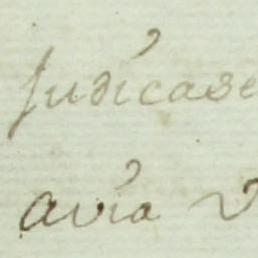 Judicase
avia